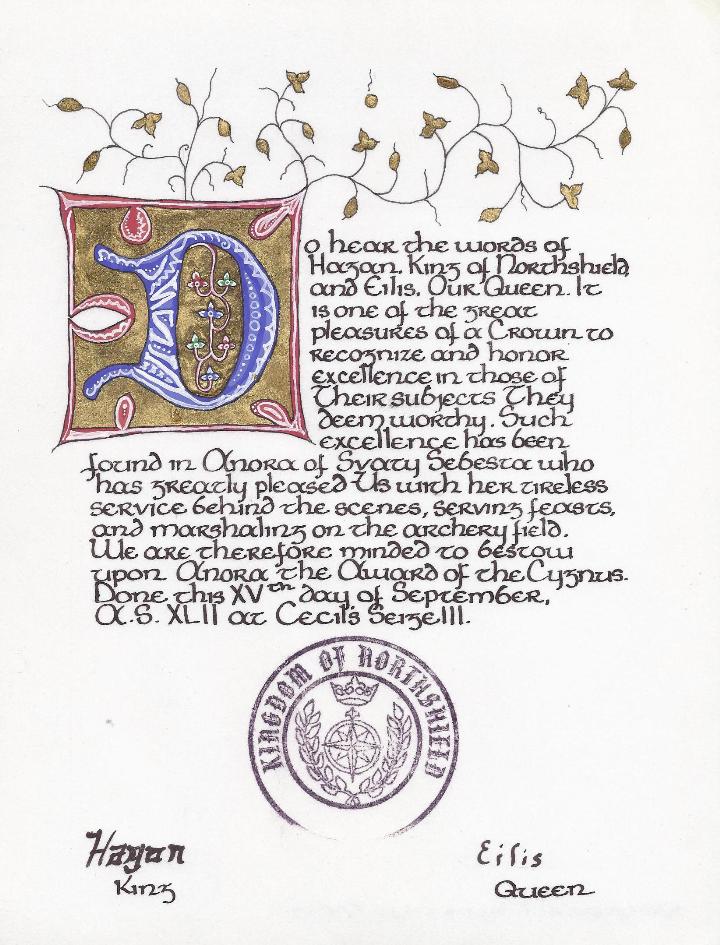 Do hear the words of
Hagan, King of Northshield
and Eilis, Our Queen. It
is one of the great
pleasures of a Crown to
recognize and honor
excellence in those of
Their subjects They
deem worthy. Such
excellence has been
found in Anora of Svaty Sebesta who
has greatly pleased Us with her tireless
service behind the scenes, serving feasts,
and marshaling on the archery field.
We are therefore minded to bestow
upon Anora the Award of the Cygnus.
Done this XVth day of September,
A.S. XLII at Cecil's Seize III.
KINGDOM OF NORTHSHIELD
Hagan
King
Eilis
Queen